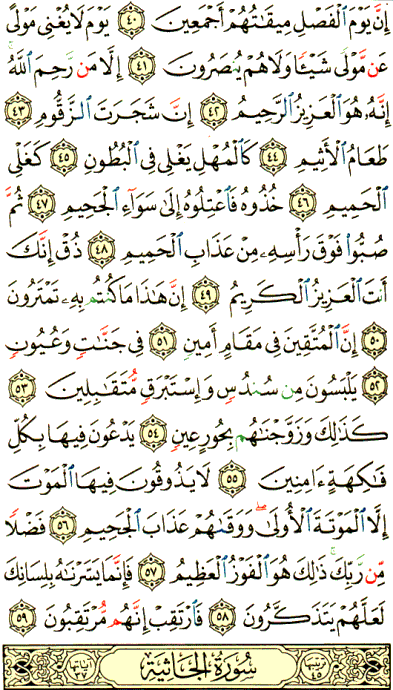 إِنَّ يَوْمَ ٱلْفَصْلِ مِيقَٰتُهُمْ أَجْمَعِينَ ٤٠ يَوْمَ لَا يُغْنِى مَوْلًى
عَن مَّوْلًى شَيْـًٔا وَلَا هُمْ يُنصَرُونَ ٤١ إِلَّا مَن رَّحِمَ ٱللَّهُ
إِنَّهُۥ هُوَ ٱلْعَزِيزُ ٱلرَّحِيمُ ٤٢ إِنَّ شَجَرَتَ ٱلزَّقُّومِ ٤٣
طَعَامُ ٱلْأَثِيمِ ٤٤ كَٱلْمُهْلِ يَغْلِى فِى ٱلْبُطُونِ ٤٥ كَغَلْىِ
ٱلْحَمِيمِ ٤٦ خُذُوهُ فَٱعْتِلُوهُ إِلَىٰ سَوَآءِ ٱلْجَحِيمِ ٤٧ ثُمَّ
صُبُّوا۟ فَوْقَ رَأْسِهِۦ مِنْ عَذَابِ ٱلْحَمِيمِ ٤٨ ذُقْ إِنَّكَ
أَنتَ ٱلْعَزِيزُ ٱلْكَرِيمُ ٤٩ إِنَّ هَٰذَا مَا كُنتُم بِهِۦ تَمْتَرُونَ
٥٠ إِنَّ ٱلْمُتَّقِينَ فِى مَقَامٍ أَمِينٍ ٥١ فِى جَنَّٰتٍ وَعُيُونٍ
٥٢ يَلْبَسُونَ مِن سُندُسٍ وَإِسْتَبْرَقٍ مُّتَقَٰبِلِينَ ٥٣
كَذَٰلِكَ وَزَوَّجْنَٰهُم بِحُورٍ عِينٍ ٥٤ يَدْعُونَ فِيهَا بِكُلِّ
فَٰكِهَةٍ ءَامِنِينَ ٥٥ لَا يَذُوقُونَ فِيهَا ٱلْمَوْتَ
إِلَّا ٱلْمَوْتَةَ ٱلْأُولَىٰ ۖ وَوَقَىٰهُمْ عَذَابَ ٱلْجَحِيمِ ٥٦ فَضْلًا
مِّن رَّبِّكَ ۚ ذَٰلِكَ هُوَ ٱلْفَوْزُ ٱلْعَظِيمُ ٥٧ فَإِنَّمَا يَسَّرْنَٰهُ بِلِسَانِكَ
لَعَلَّهُمْ يَتَذَكَّرُونَ ٥٨ فَٱرْتَقِبْ إِنَّهُم مُّرْتَقِبُونَ ٥٩
ترتيبها ٤٥ سُورَةُ الجَاثِيَةِ آياتها ٣٧